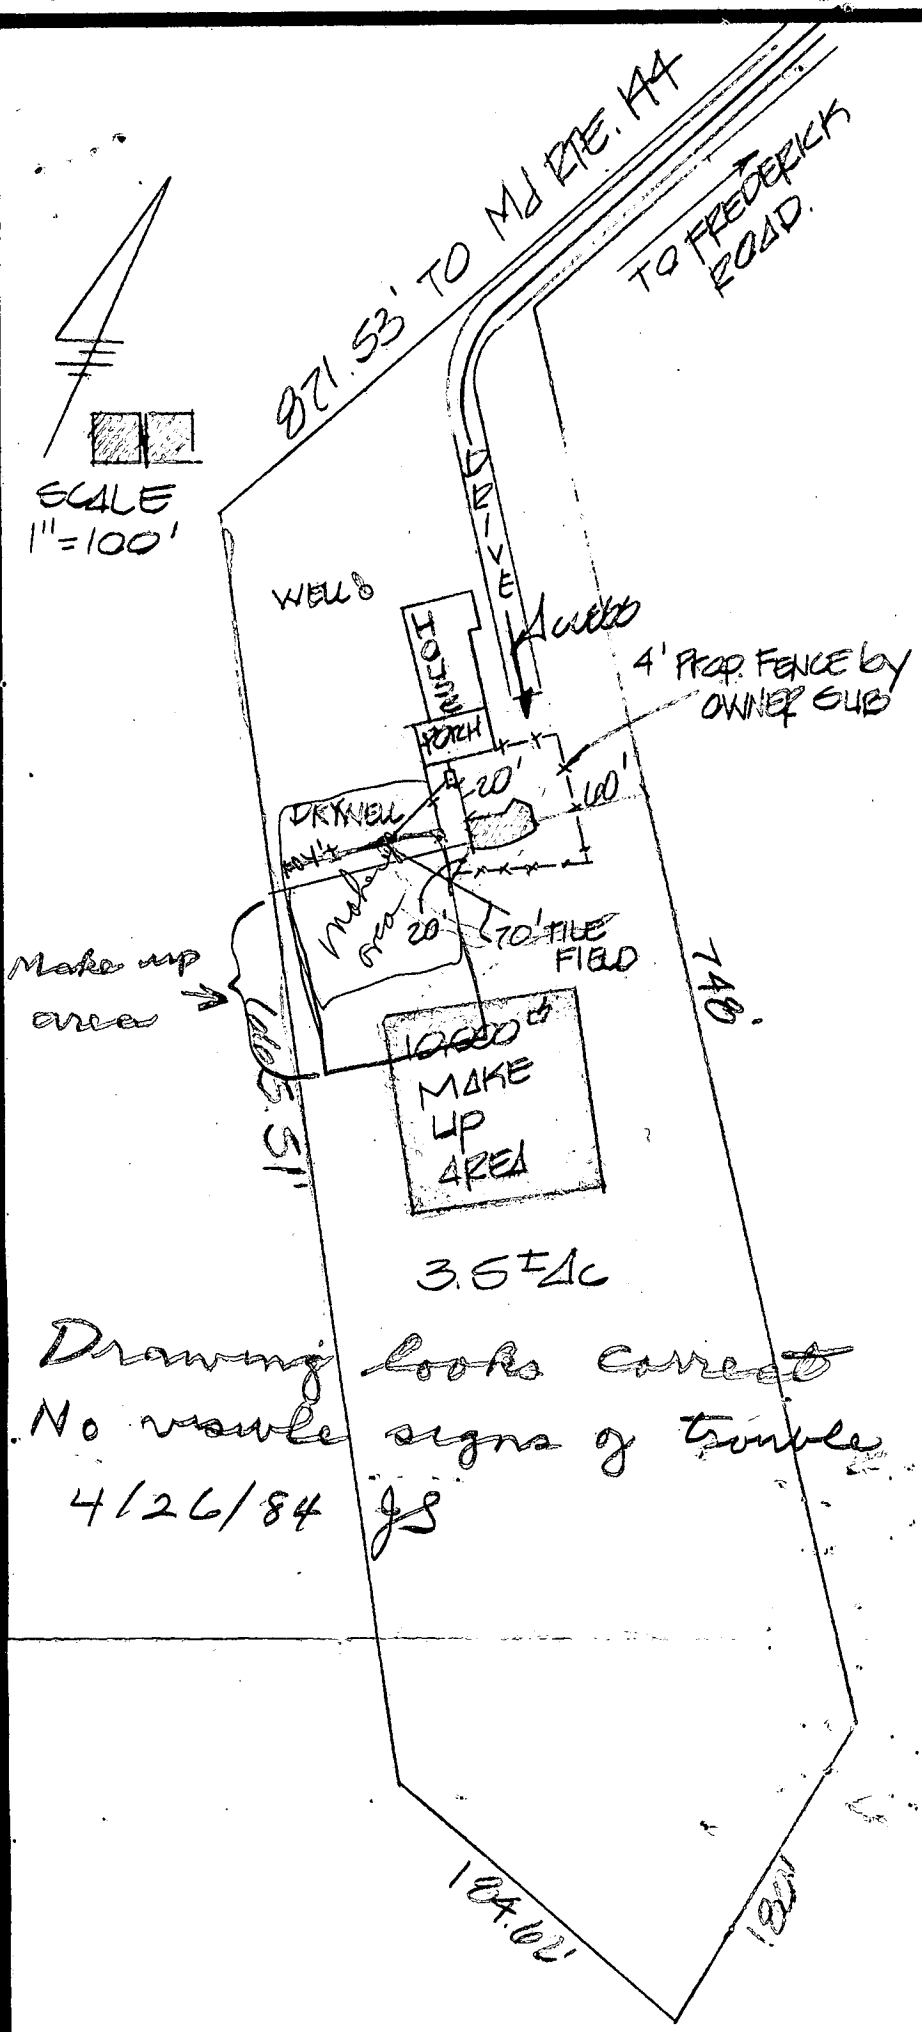 871.53' TO Md RTE. 144
TO FREDERICK
ROAD.
SCALE
1"=100'
DRIVE
WELL
4' PROP. FENCE by
OWNER SUB
PORCH
20'
60'
DRYWELL
Make up
area
20'
70' TILE
FIELD
Make up
area
748'
10,000
MAKE
UP
AREA
3.5±AC
Drawing looks correct
No visible signs of trouble
4/26/84 JS
184.62'